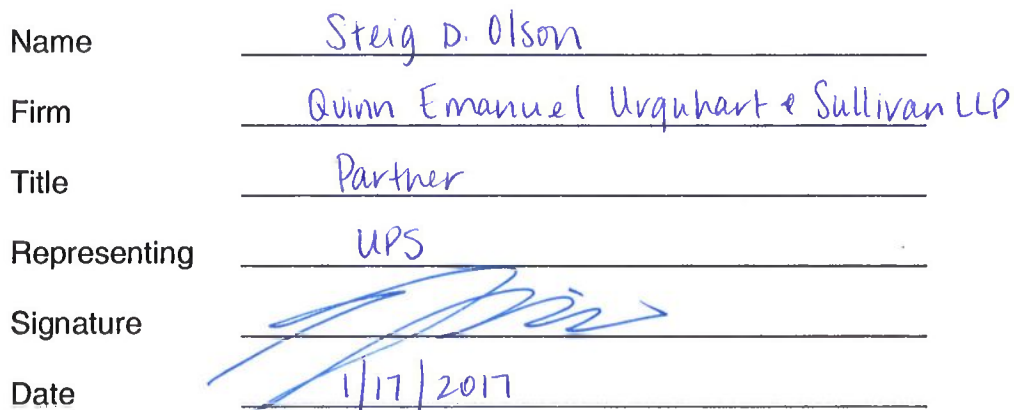 Name Steig D. Olson
Firm Quinn Emanuel Urquhart & Sullivan LLP
Title Partner
Representing UPS
Signature
Date 1/17/2017